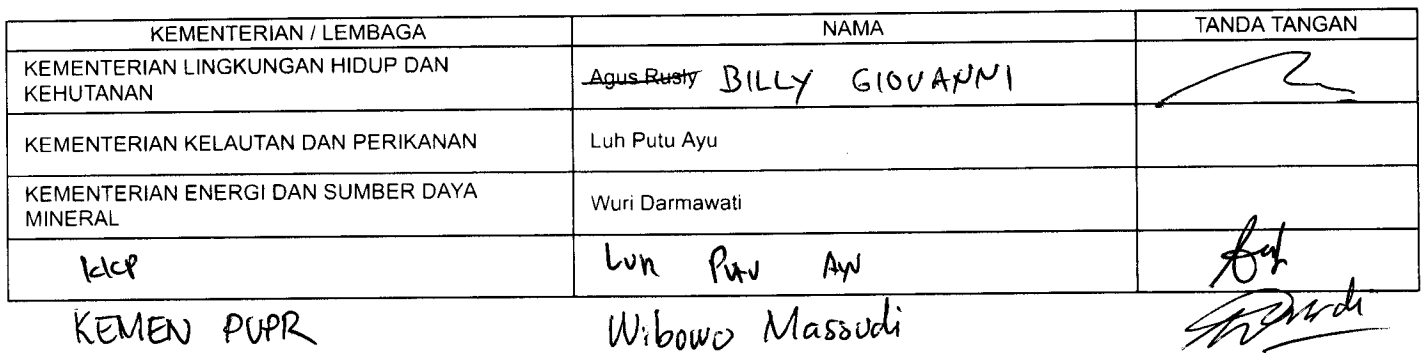 KEMENTERIAN / LEMBAGA NAMA TANDA TANGAN
KEMENTERIAN LINGKUNGAN HIDUP DAN
KEHUTANAN
Agus Rusly BILLY GIOVANNI
KEMENTERIAN KELAUTAN DAN PERIKANAN Luh Putu Ayu
KEMENTERIAN ENERGI DAN SUMBER DAYA
MINERAL
Wuri Darmawati
KKP Luh Putu Ayu
KEMEN PUPR Wibowo Massudi